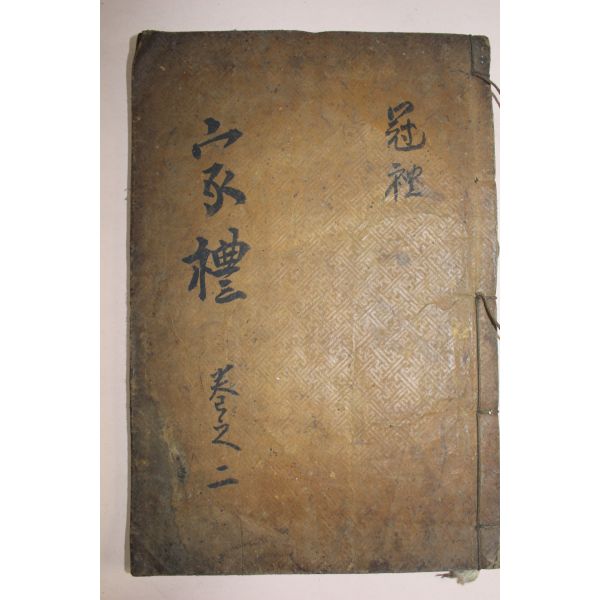 冠礼
家禮
卷之二